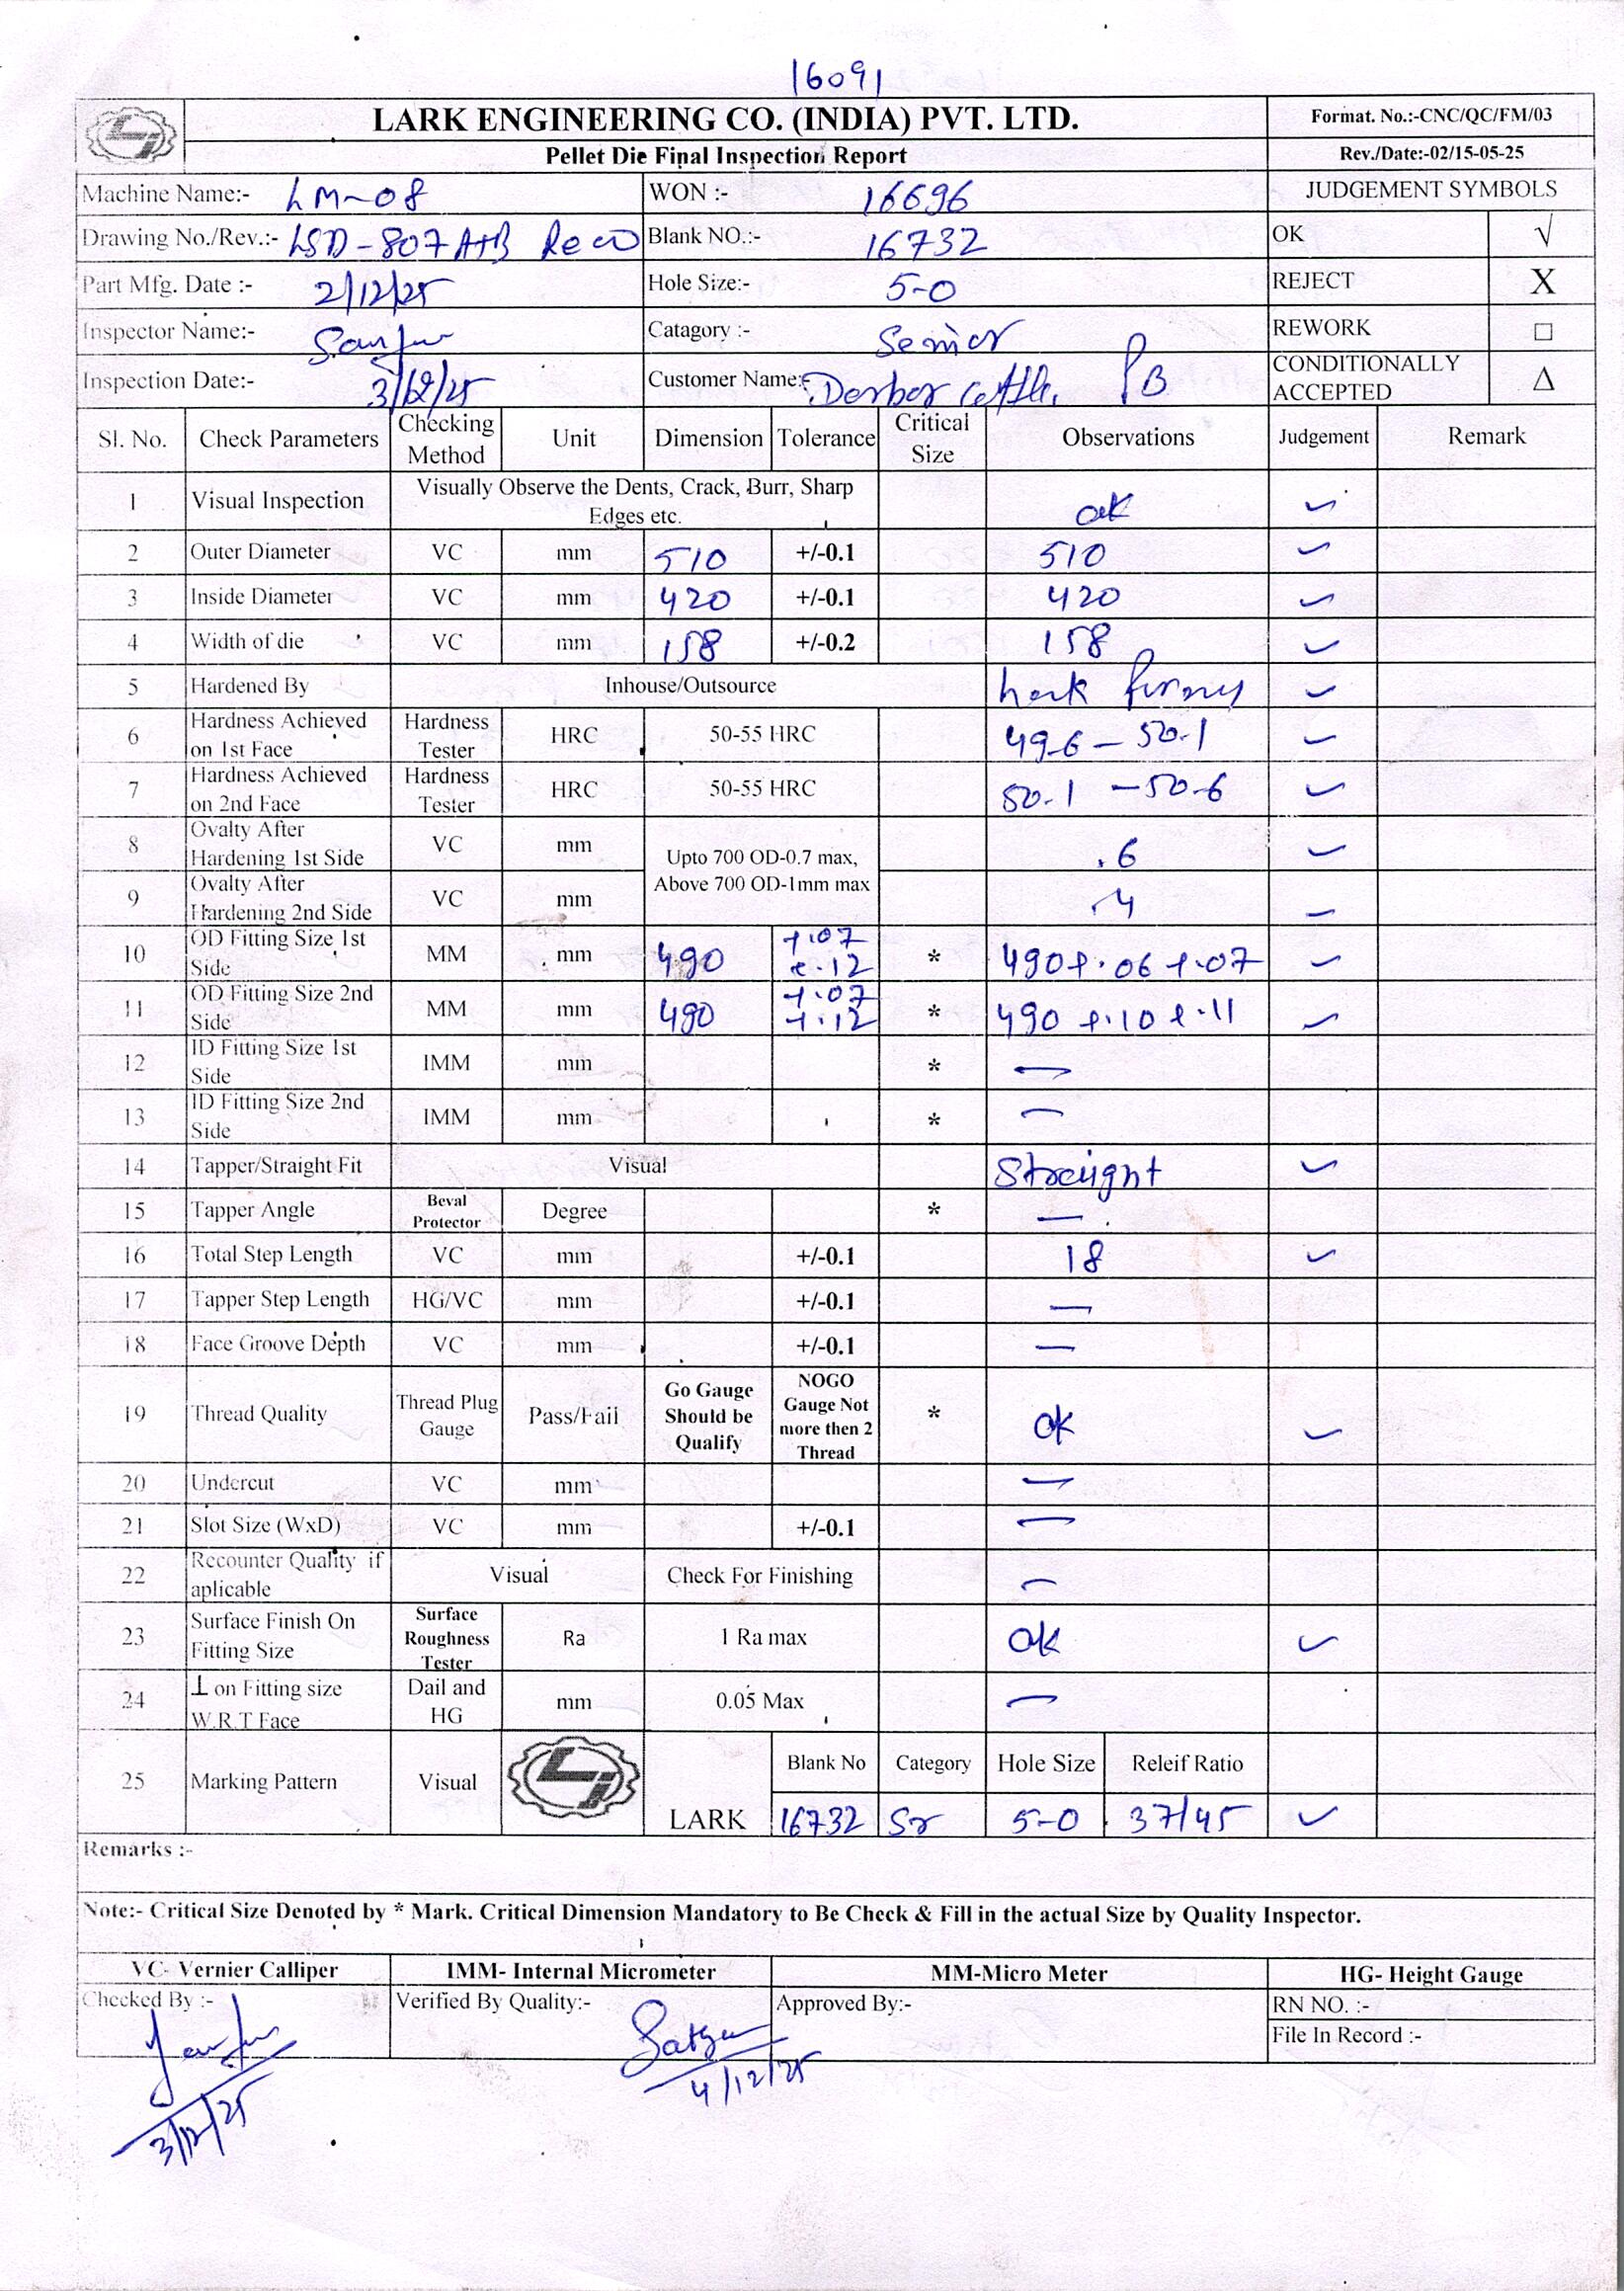 16091
LARK ENGINEERING CO. (INDIA) PVT. LTD.
Format. No.:-CNC/QC/FM/03
Pellet Die Final Inspection Report
Rev./Date:-02/15-05-25
Machine Name:- LM-08 WON :- 16696 JUDGEMENT SYMBOLS
Drawing No./Rev.:- LSD-807A+B Blank NO.:- 16732 OK √
Part Mfg. Date :- 2/12/25 Hole Size:- 5-0 REJECT X
Inspector Name:- Catagory :- Senior REWORK □
Inspection Date:- 3/12/25 Customer Name:- PB CONDITIONALLY ACCEPTED Δ
Sl. No. Check Parameters Checking Method Unit Dimension Tolerance Critical Size Observations Judgement Remark
1 Visual Inspection Visually Observe the Dents, Crack, Burr, Sharp Edges etc. ok ✓
2 Outer Diameter VC mm 510 +/-0.1 510 ✓
3 Inside Diameter VC mm 420 +/-0.1 420 ✓
4 Width of die VC mm 158 +/-0.2 158 ✓
5 Hardened By Inhouse/Outsource ✓
6 Hardness Achieved on 1st Face Hardness Tester HRC 50-55 HRC 49-6 – 50-1 ✓
7 Hardness Achieved on 2nd Face Hardness Tester HRC 50-55 HRC 50-1 – 50-6 ✓
8 Ovalty After Hardening 1st Side VC mm Upto 700 OD-0.7 max, Above 700 OD-1mm max .6 ✓
9 Ovalty After Hardening 2nd Side VC mm .4 –
10 OD Fitting Size 1st Side MM mm 490 +.07 +.12 * 490+.06 +.07 ✓
11 OD Fitting Size 2nd Side MM mm 490 +.07 +.12 * 490 +.10 +.11 ✓
12 ID Fitting Size 1st Side IMM mm * –
13 ID Fitting Size 2nd Side IMM mm * –
14 Tapper/Straight Fit Visual Streight ✓
15 Tapper Angle Beval Protector Degree * –
16 Total Step Length VC mm +/-0.1 18 ✓
17 Tapper Step Length HG/VC mm +/-0.1 –
18 Face Groove Depth VC mm +/-0.1 –
19 Thread Quality Thread Plug Gauge Pass/Fail Go Gauge Should be Qualify NOGO Gauge Not more then 2 Thread * ok ✓
20 Undercut VC mm –
21 Slot Size (WxD) VC mm +/-0.1 –
22 Recounter Quality if aplicable Visual Check For Finishing –
23 Surface Finish On Fitting Size Surface Roughness Tester Ra 1 Ra max ok ✓
24 ⊥ on Fitting size W.R.T Face Dail and HG mm 0.05 Max –
25 Marking Pattern Visual LARK Blank No Category Hole Size Releif Ratio
16732 Sr 5-0 37/45 ✓
Remarks :-
Note:- Critical Size Denoted by * Mark. Critical Dimension Mandatory to Be Check & Fill in the actual Size by Quality Inspector.
VC- Vernier Calliper IMM- Internal Micrometer MM-Micro Meter HG- Height Gauge
Checked By :- Verified By Quality:- Approved By:- RN NO. :-
File In Record :-
3/12/25 4/12/25